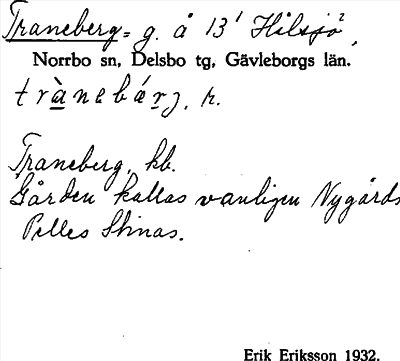 Traneberg = g. å 13¹ Hålsjö²,
Norrbo sn, Delsbo tg, Gävleborgs län.
trànebárj, r.
Traneberg, kb.
Gården kallas vanligen Nygårds
Pelles Stinas.
Erik Eriksson 1932.